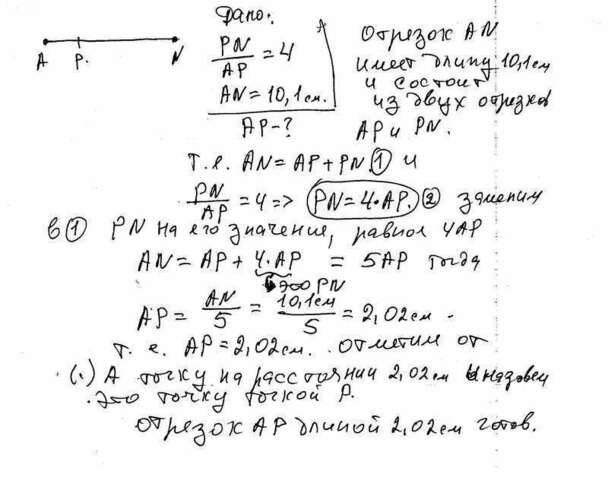 A P. N
Дано:
PN/AP = 4
AN = 10,1 см.
AP - ?
Отрезок AN
имеет длину 10,1 см
и состоит
из двух отрезков
AP и PN.
т.е. AN = AP + PN ① и
PN/AP = 4 => PN = 4·AP. ② заменим
в ① PN на его значение, равное 4AP
AN = AP + 4·AP = 5AP тогда
это PN
AP = AN/5 = 10,1см/5 = 2,02 см.
т.е. AP = 2,02 см. отметим от
(·) A точку на расстоянии 2,02 см и назовем
это точку точкой P.
Отрезок AP длиной 2,02 см готов.